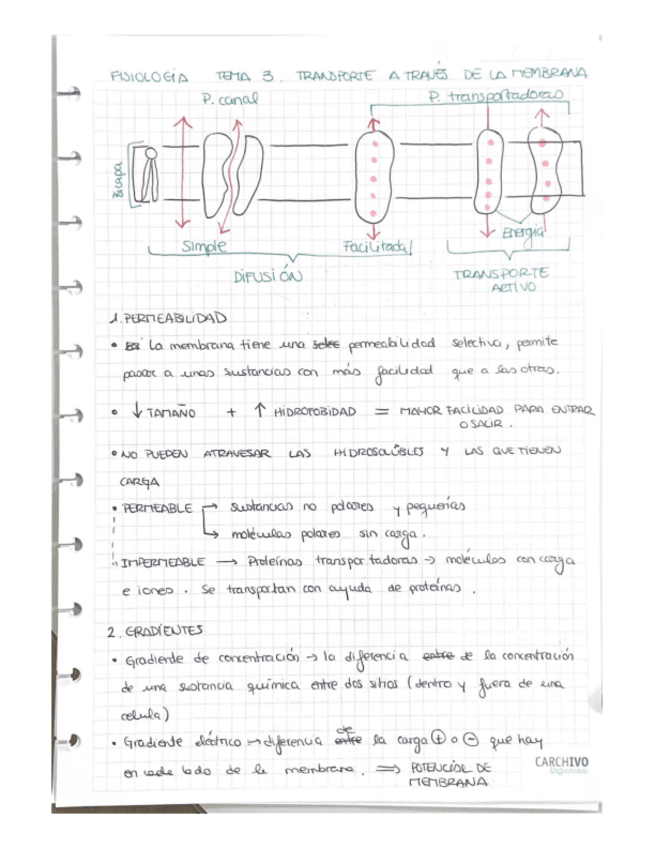 FISIOLOGÍA TEMA 3. TRANSPORTE A TRAVÉS DE LA MEMBRANA
P. canal P. transportadoras
Bicapa
Simple Facilitada Energía
DIFUSIÓN TRANSPORTE
ACTIVO
1. PERMEABILIDAD
• La membrana tiene una permeabilidad selectiva, permite
pasar a unas sustancias con más facilidad que a las otras.
• ↓ TAMAÑO + ↑ HIDROFOBIDAD = MAYOR FACILIDAD PARA ENTRAR
O SALIR.
• NO PUEDEN ATRAVESAR LAS HIDROSOLÚBLES Y LAS QUE TIENEN
CARGA
• PERMEABLE → sustancias no polares y pequeñas
↳ moléculas polares sin carga.
• IMPERMEABLE → Proteínas transportadoras → moléculas con carga
e iones. Se transportan con ayuda de proteínas.
2. GRADIENTES
• Gradiente de concentración → la diferencia entre de la concentración
de una sustancia química entre dos sitios (dentro y fuera de una
celula)
• Gradiente eléctrico → diferencia entre de la carga ⊕ o ⊖ que hay
en cada lado de la membrana. ⇒ POTENCIAL DE
MEMBRANA
CARCHIVO